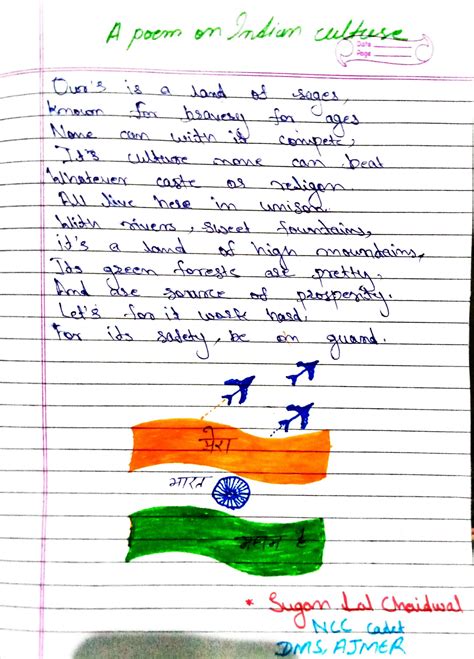 A poem on Indian culture
Date
Page
Our's is a land of sages,
Known for bravery for ages
None can with it compete,
It's culture none can beat
Whatever caste or religon.
All live here in unison.
With rivers, sweet fountains,
it's a land of high mountains,
Its green forests are pretty,
And are source of prosperity.
Let's for it work hard.
For its safety, be on guard.
मेरा
भारत
महान है
* Sugan Lal Choidwal
NCC Cadet
DMS, AJMER